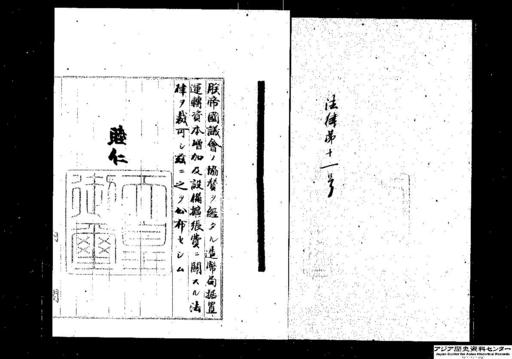 法律第十一号
朕帝國議會ノ協賛ヲ經タル造幣局据置
運轉資本增加及設備擴張費ニ關スル法
律ヲ裁可シ茲ニ之ヲ公布セシム
睦仁
天皇御璽
月
アジア歴史資料センター
Japan Center for Asian Historical Records